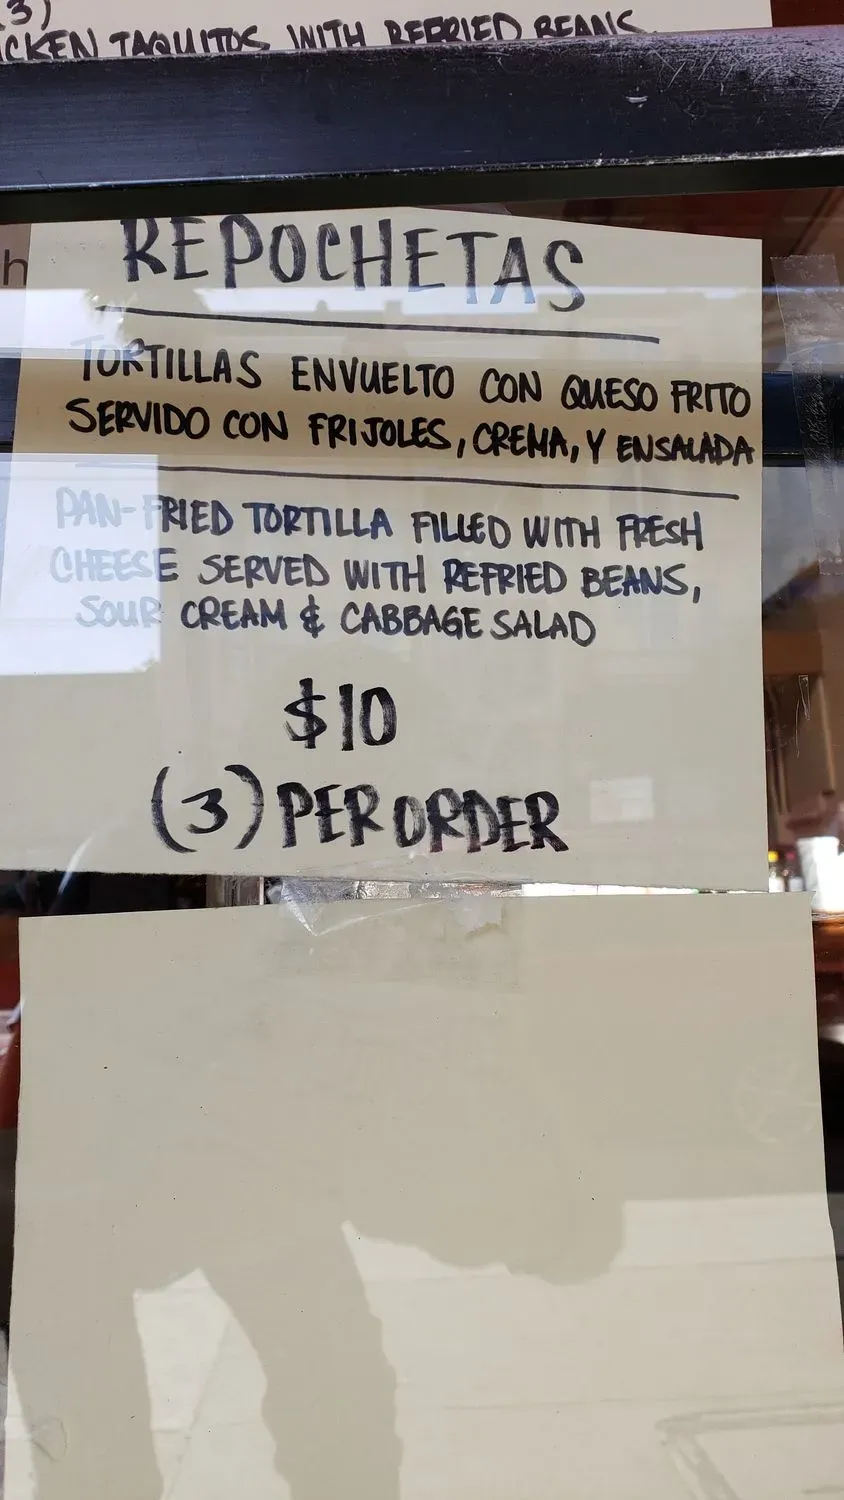 3)
CKEN TAQUITOS WITH REFRIED BEANS
h
REPOCHETAS
TORTILLAS ENVUELTO CON QUESO FRITO
SERVIDO CON FRIJOLES, CREMA, Y ENSALADA
PAN-FRIED TORTILLA FILLED WITH FRESH
CHEESE SERVED WITH REFRIED BEANS,
SOUR CREAM & CABBAGE SALAD
$10
(3) PER ORDER